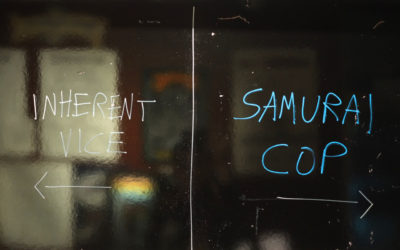 INHERENT
VICE
SAMURAI
COP